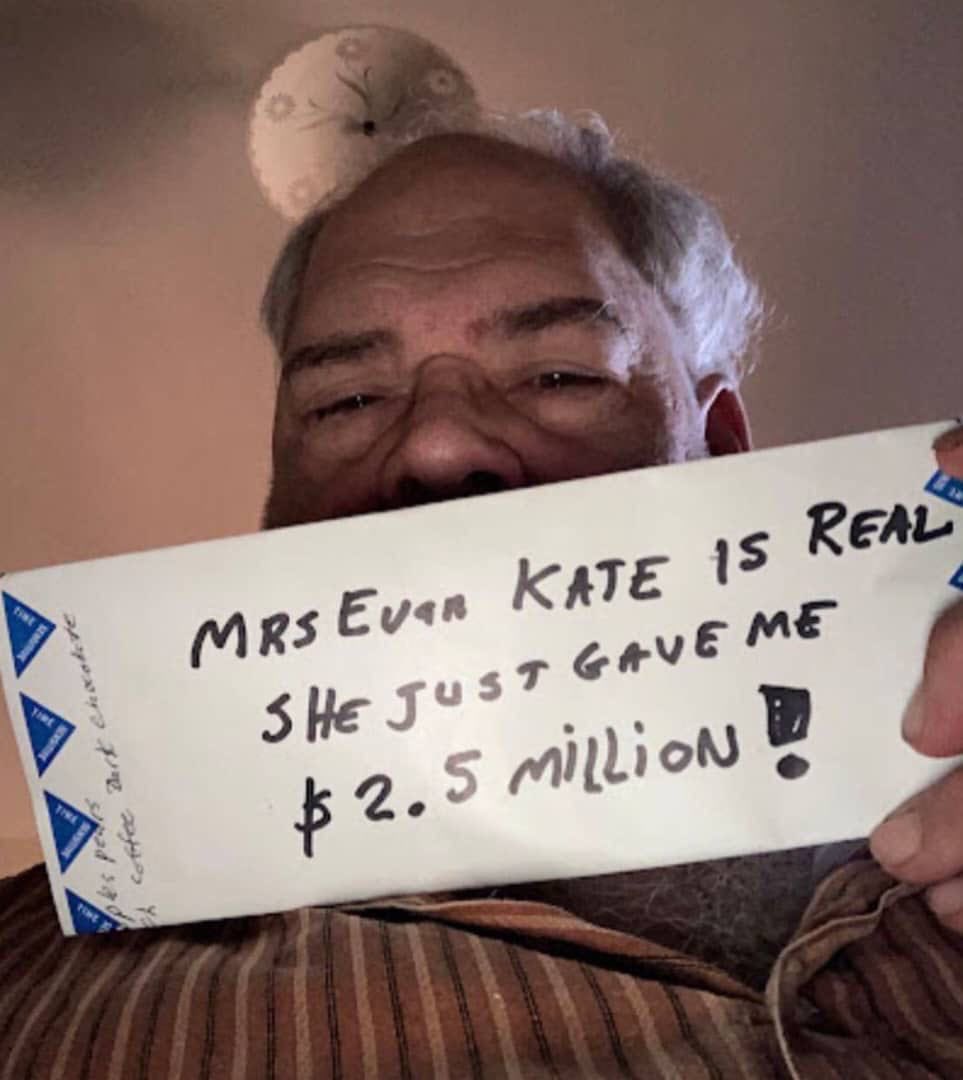 MRS Evan KATE IS REAL
SHE JUST GAVE ME
$2.5 MilliON!
coffee Dark chocolate
pears
TIME
TIME
TIME
TIME